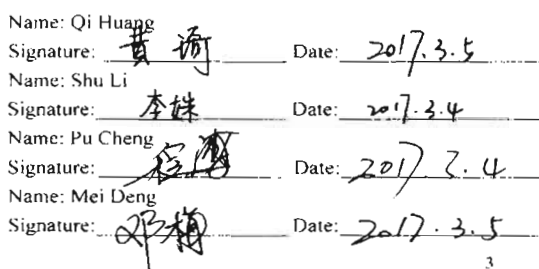 Name: Qi Huang
Signature: 黄琦 Date: 2017.3.5
Name: Shu Li
Signature: 李姝 Date: 2017.3.4
Name: Pu Cheng
Signature: Date: 2017.3.4
Name: Mei Deng
Signature: 邓梅 Date: 2017.3.5
3